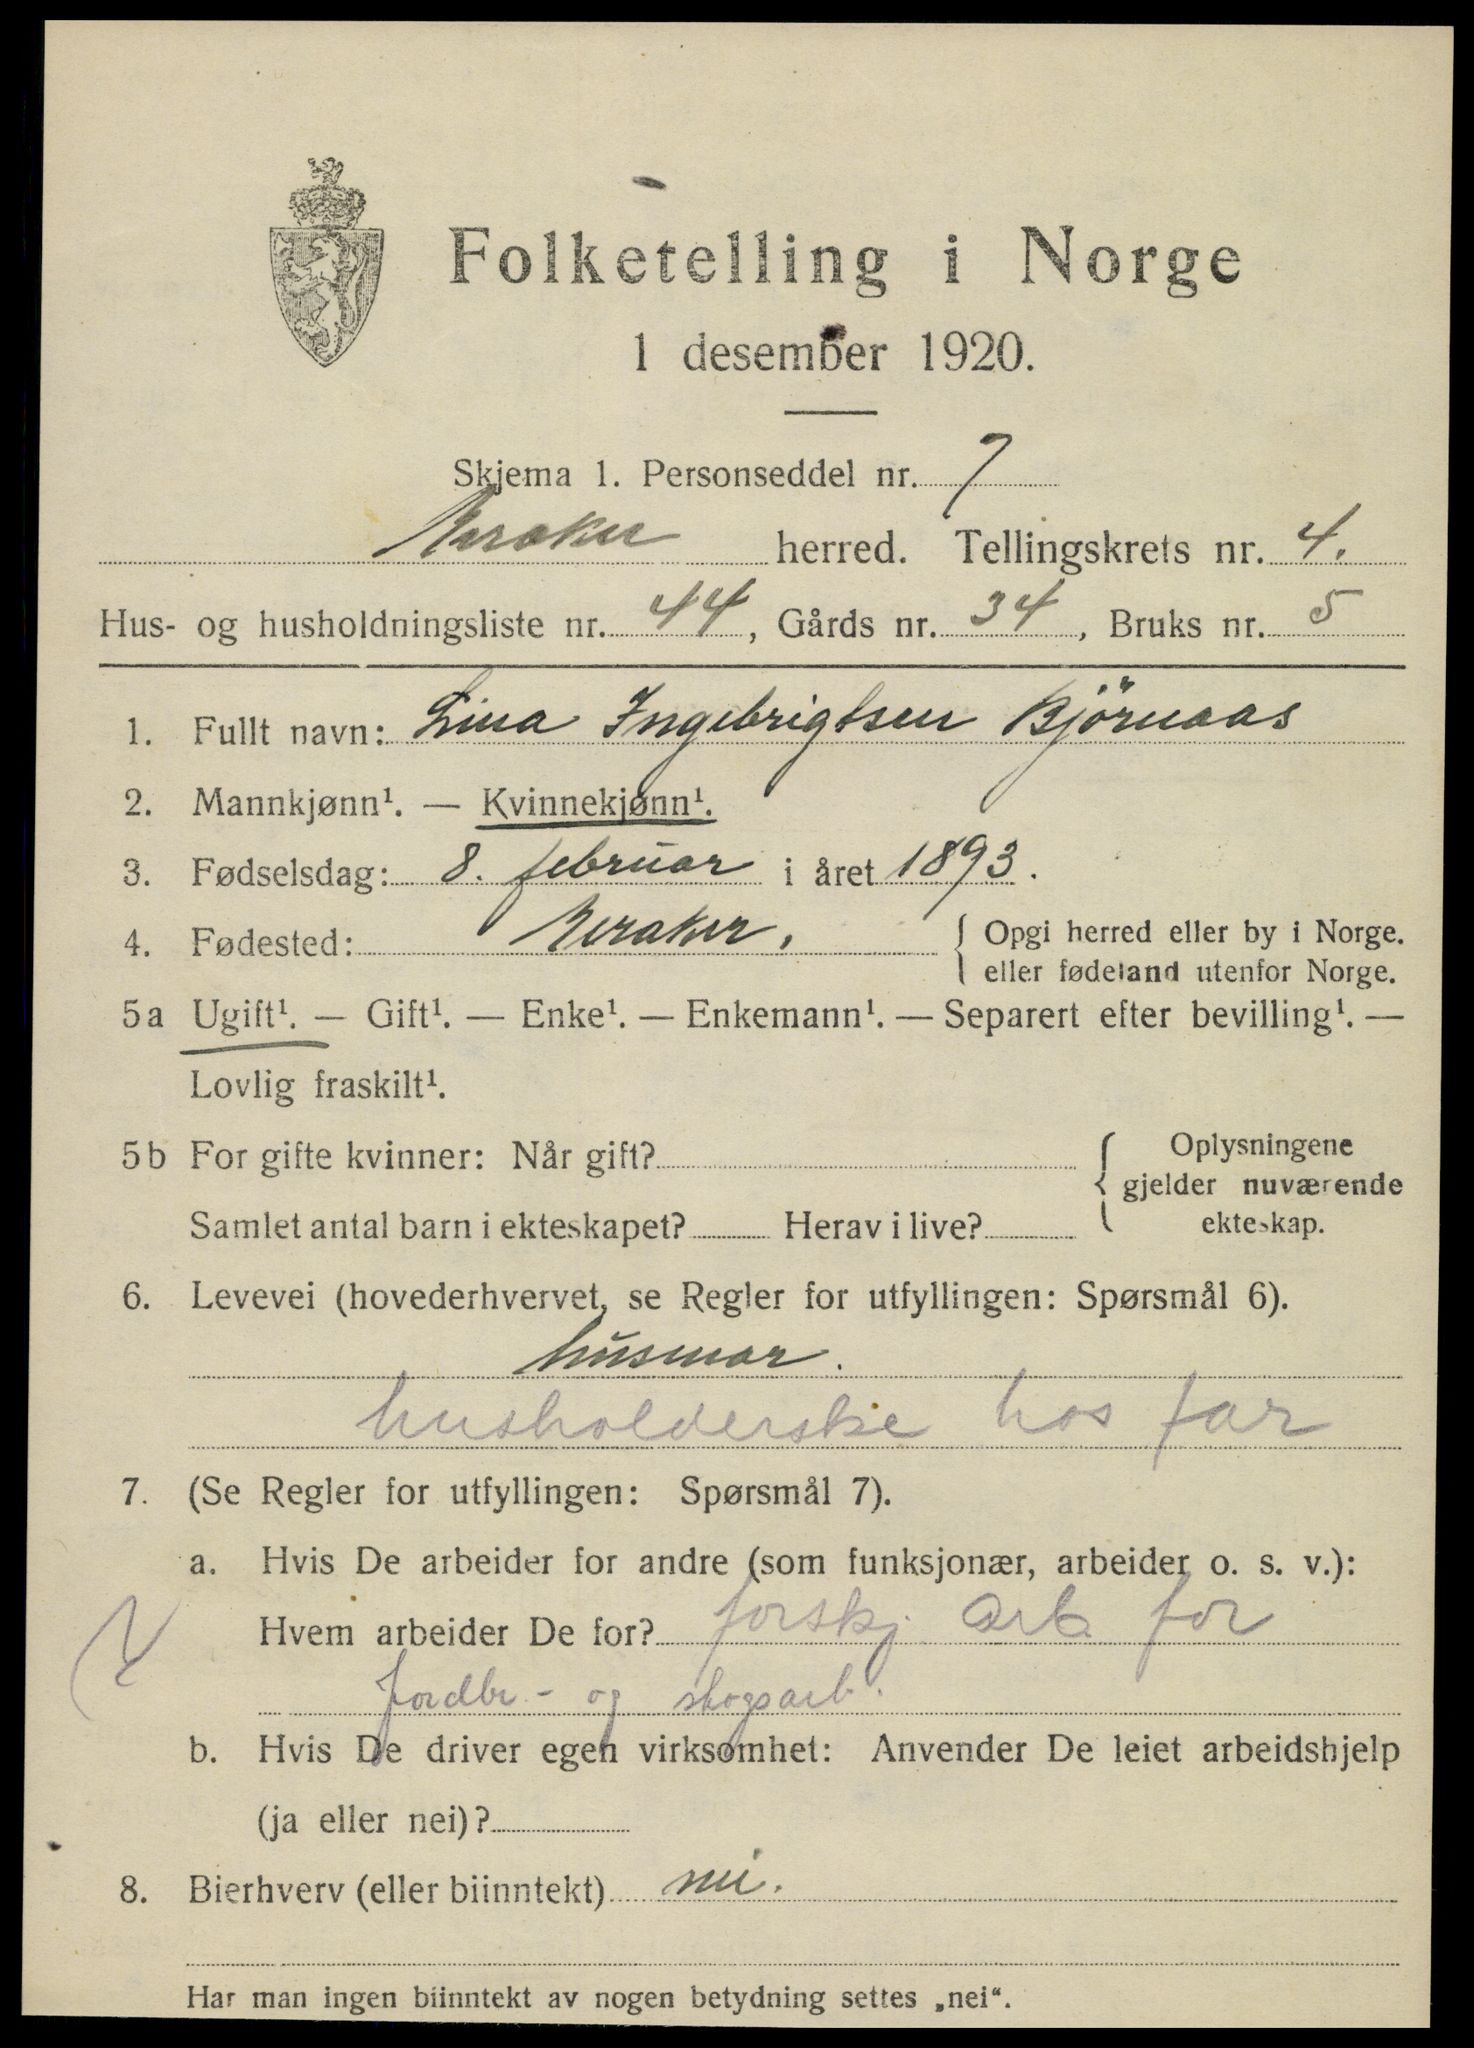 Folketelling i Norge
1 desember 1920.
Skjema 1. Personseddel nr. 7
Meraker herred. Tellingskrets nr. 4.
Hus- og husholdningsliste nr. 44, Gårds nr. 34, Bruks nr. 5
1. Fullt navn: Lina Ingebrigtsen Björnaas
2. Mannkjønn¹. — Kvinnekjønn¹.
3. Fødselsdag: 8. februar i året 1893.
4. Fødested: Meraker. { Opgi herred eller by i Norge.
eller fødeland utenfor Norge.
5a Ugift¹. — Gift¹. — Enke¹. — Enkemann¹. — Separert efter bevilling¹. —
Lovlig fraskilt¹.
5b For gifte kvinner: Når gift? { Oplysningene
gjelder nuværende
Samlet antal barn i ekteskapet? Herav i live? ekteskap.
6. Levevei (hovederhvervet, se Regler for utfyllingen: Spørsmål 6).
husmor.
husholderske hos far
7. (Se Regler for utfyllingen: Spørsmål 7).
a. Hvis De arbeider for andre (som funksjonær, arbeider o. s. v.):
Hvem arbeider De for? forskj arb for
jordbr.- og skogsarb.
b. Hvis De driver egen virksomhet: Anvender De leiet arbeidshjelp
(ja eller nei)?
8. Bierhverv (eller biinntekt) nei.
Har man ingen biinntekt av nogen betydning settes „nei“.